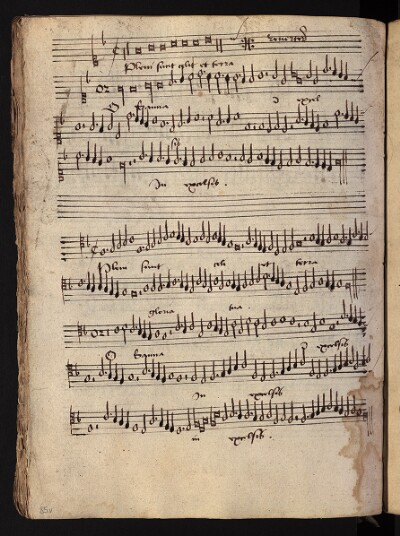 Pleni sunt celi et terra
Osanna
In excelsis.
Pleni sunt celi et terra
gloria tua
Osanna excelsis
In excelsis
in excelsis.